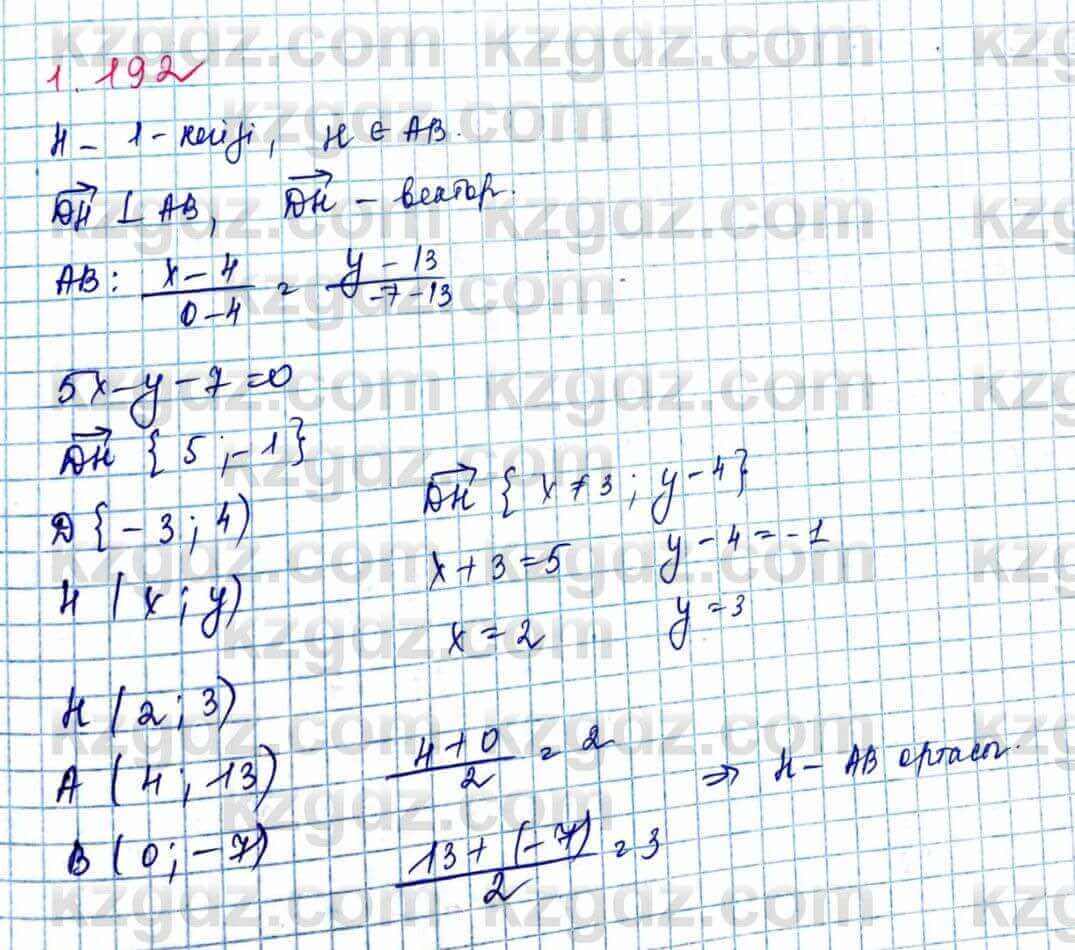 kzgdz.com kzgdz.com
1.192
H - 1-, H ∈ AB.
DH ⊥ AB, DH - вектор.
AB: (x-4)/(0-4) = (y-13)/(-7-13)
5x-y-7=0
DH {5;-1}
DH {x+3; y-4}
D{-3; 4)
x+3=5 y-4=-1
H (x; y)
x=2 y=3
H (2; 3)
A (4; 13) (4+0)/2 = 2 => H - AB ортасы.
B (0; -7) (13+(-7))/2 = 3